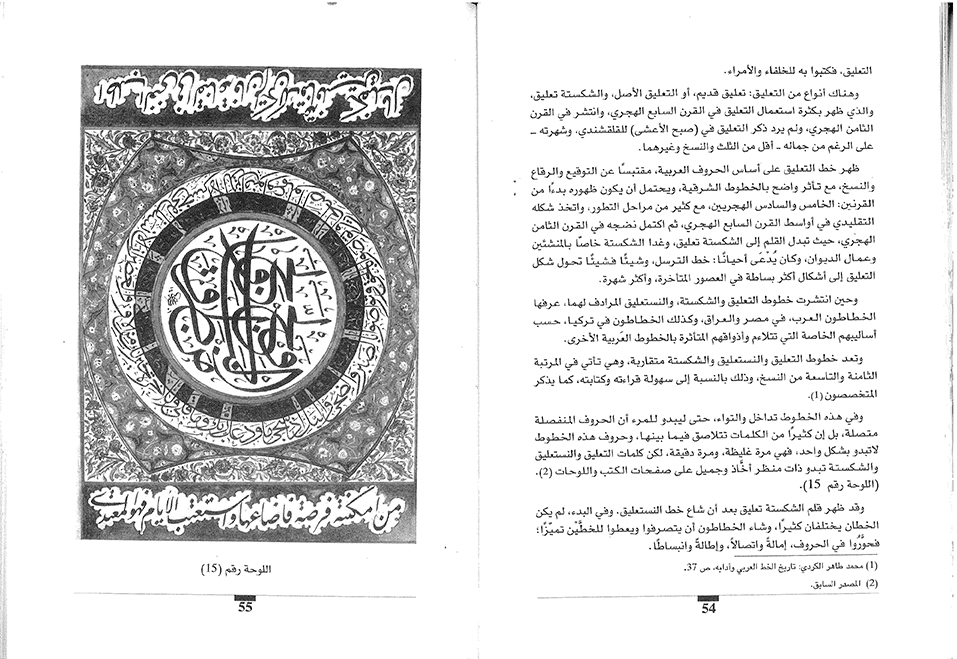 التعليق، فكتبوا به للخلفاء والأمراء.
وهناك أنواع من التعليق: تعليق قديم، أو التعليق الأصل، والشكستة تعليق،
والذي ظهر بكثرة استعمال التعليق في القرن السابع الهجري، وانتشر في القرن
الثامن الهجري، ولم يرد ذكر التعليق في (صبح الأعشى) للقلقشندي، وشهرته ــ
على الرغم من جماله ــ أقل من الثلث والنسخ وغيرهما.
ظهر خط التعليق على أساس الحروف العربية، مقتبسًا عن التوقيع والرقاع
والنسخ، مع تأثر واضح بالخطوط الشرقية، ويحتمل أن يكون ظهوره بدءًا من
القرنين: الخامس والسادس الهجريين، مع كثير من مراحل التطور، واتخذ شكله
التقليدي في أواسط القرن السابع الهجري، ثم اكتمل نضجه في القرن الثامن
الهجري، حيث تبدل القلم إلى الشكستة تعليق، وغدا الشكستة خاصًا بالمنشئين
وعمال الديوان، وكان يُدْعَى أحيانًا: خط الترسل، وشيئًا فشيئًا تحول شكل
التعليق إلى أشكال أكثر بساطة في العصور المتأخرة، وأكثر شهرة.
وحين انتشرت خطوط التعليق والشكستة، والنستعليق المرادف لهما، عرفها
الخطاطون العرب، في مصر والعراق، وكذلك الخطاطون في تركيا، حسب
أساليبهم الخاصة التي تتلاءم وأذواقهم المتأثرة بالخطوط العَربية الأخرى.
وتعد خطوط التعليق والنستعليق والشكستة متقاربة، وهي تأتي في المرتبة
الثامنة والتاسعة من النسخ، وذلك بالنسبة إلى سهولة قراءته وكتابته، كما يذكر
المتخصصون (1).
وفي هذه الخطوط تداخل والتواء، حتى ليبدو للمرء أن الحروف المنفصلة
متصلة، بل إن كثيرًا من الكلمات تتلاصق فيما بينها، وحروف هذه الخطوط
لاتبدو بشكل واحد، فهي مرة غليظة، ومرة دقيقة، لكن كلمات التعليق والنستعليق
والشكستة تبدو ذات منظر أخَّاذ وجميل على صفحات الكتب واللوحات (2).
(اللوحة رقم 15).
وقد ظهر قلم الشكستة تعليق بعد أن شاع خط النستعليق. وفي البدء، لم يكن
الخطان يختلفان كثيرًا، وشاء الخطاطون أن يتصرفوا ويعطوا للخطَّيْن تميّزًا؛
فحوَّرُوا في الحروف، إمالةً واتصالاً، وإطالةً وانبساطًا.
(1) محمد طاهر الكردي: تاريخ الخط العربي وآدابه، ص 37.
(2) المصدر السابق.
54
من امكنته فرصة فاضاعها واستعتب الأيام فهو المعتدي
اللوحة رقم (15)
55